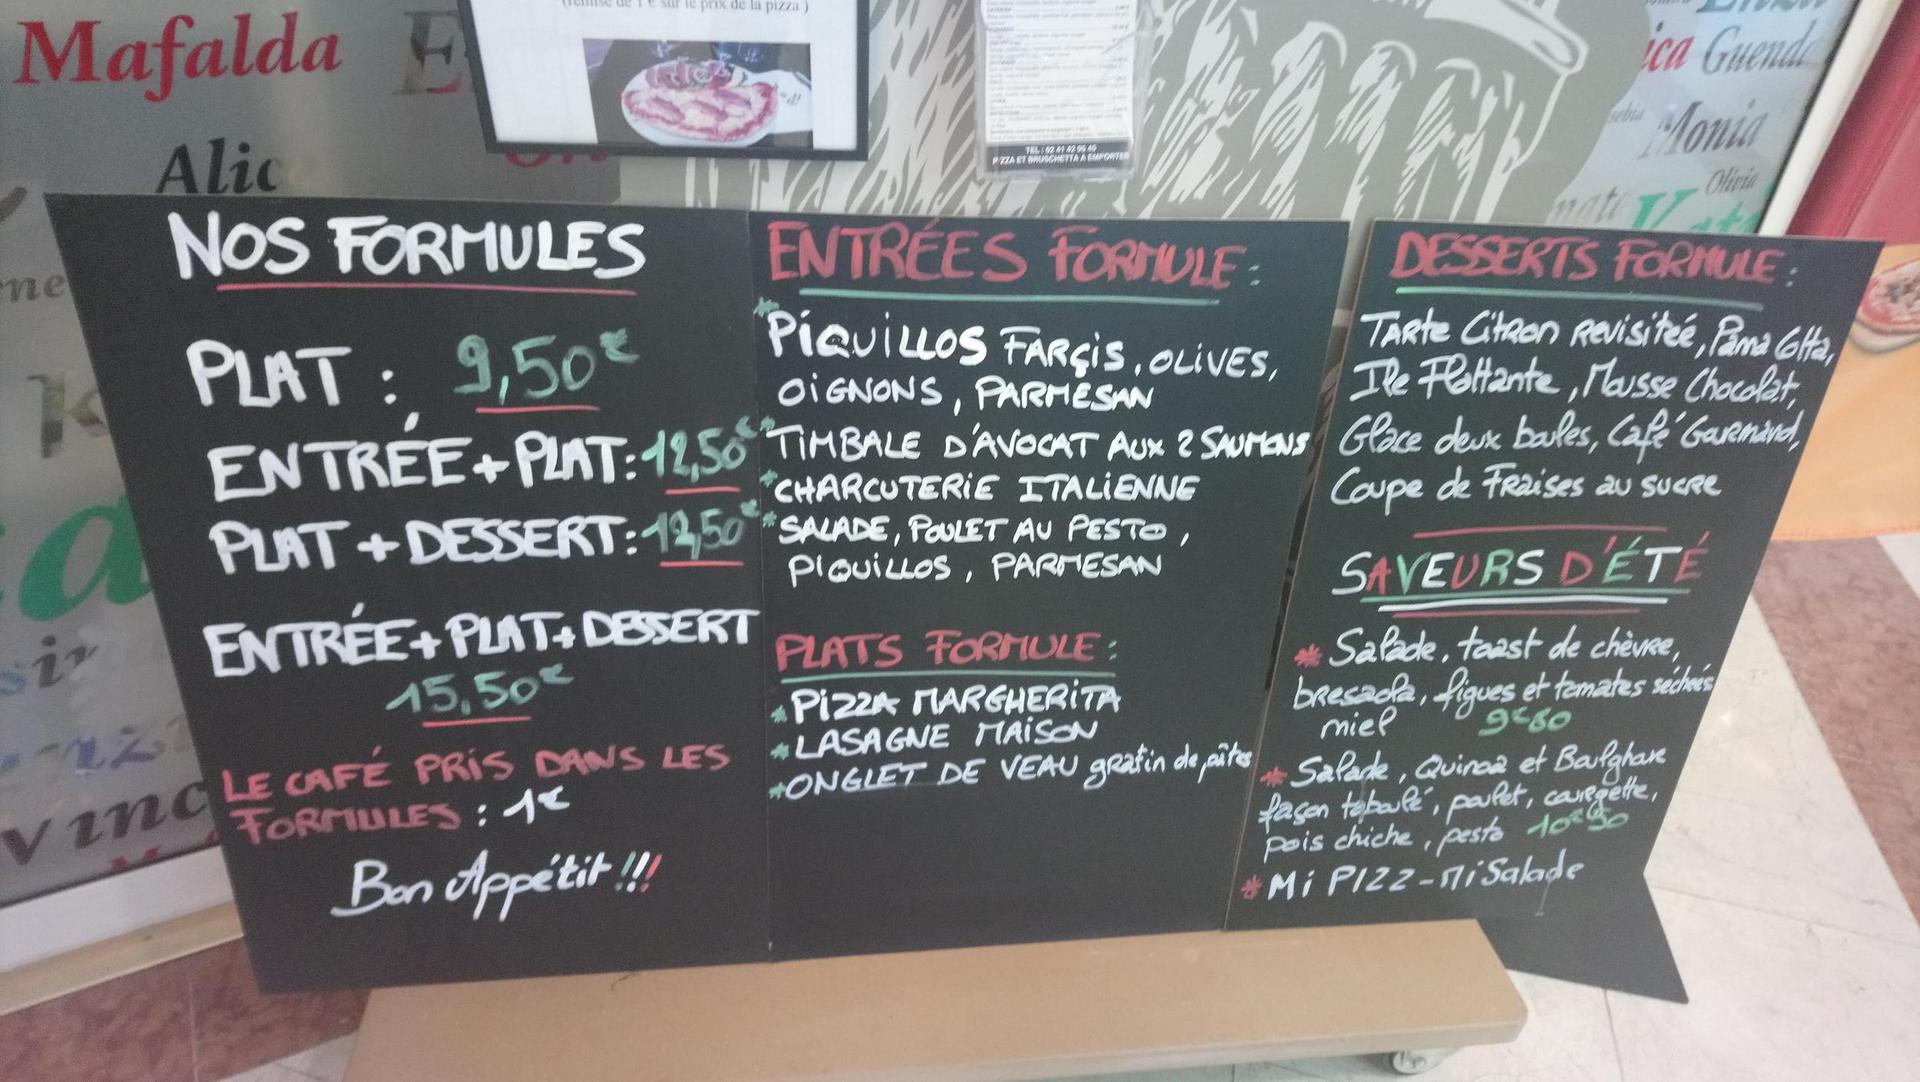 (remise de 1 € sur le prix de la pizza)
TEL : 02 41 42 05 45
PIZZA ET BRUSCHETTA A EMPORTER
Mafalda
Alic
Vinc
Guenda
Monia
Olivia
NOS FORMULES
PLAT : 9,50€
ENTRÉE + PLAT : 12,50€
PLAT + DESSERT : 12,50€
ENTRÉE + PLAT + DESSERT
15,50€
LE CAFÉ PRIS DANS LES
FORMULES : 1€
Bon Appétit !!!
ENTRÉES FORMULE :
* PIQUILLOS FARÇIS, OLIVES,
OIGNONS, PARMESAN
* TIMBALE D'AVOCAT AUX 2 SAUMONS
* CHARCUTERIE ITALIENNE
* SALADE, POULET AU PESTO,
PIQUILLOS, PARMESAN
PLATS FORMULE :
* PIZZA MARGHERITA
* LASAGNE MAISON
* ONGLET DE VEAU gratin de pâtes
DESSERTS FORMULE :
TARTE Citron revisiteé, Pana Cotta,
Ile Flottante, Mousse Chocolat,
Glace deux boules, Café Gourmand,
Coupe de Fraises au sucre
SAVEURS D'ÉTÉ
* Salade, toast de chèvre,
bresaola, figues et tomates sechées
miel 9€80
* Salade, Quinoa et Boulghour
façon taboulé, poulet, courgette,
pois chiche, pesto 10€50
* Mi PIZZ - Mi Salade